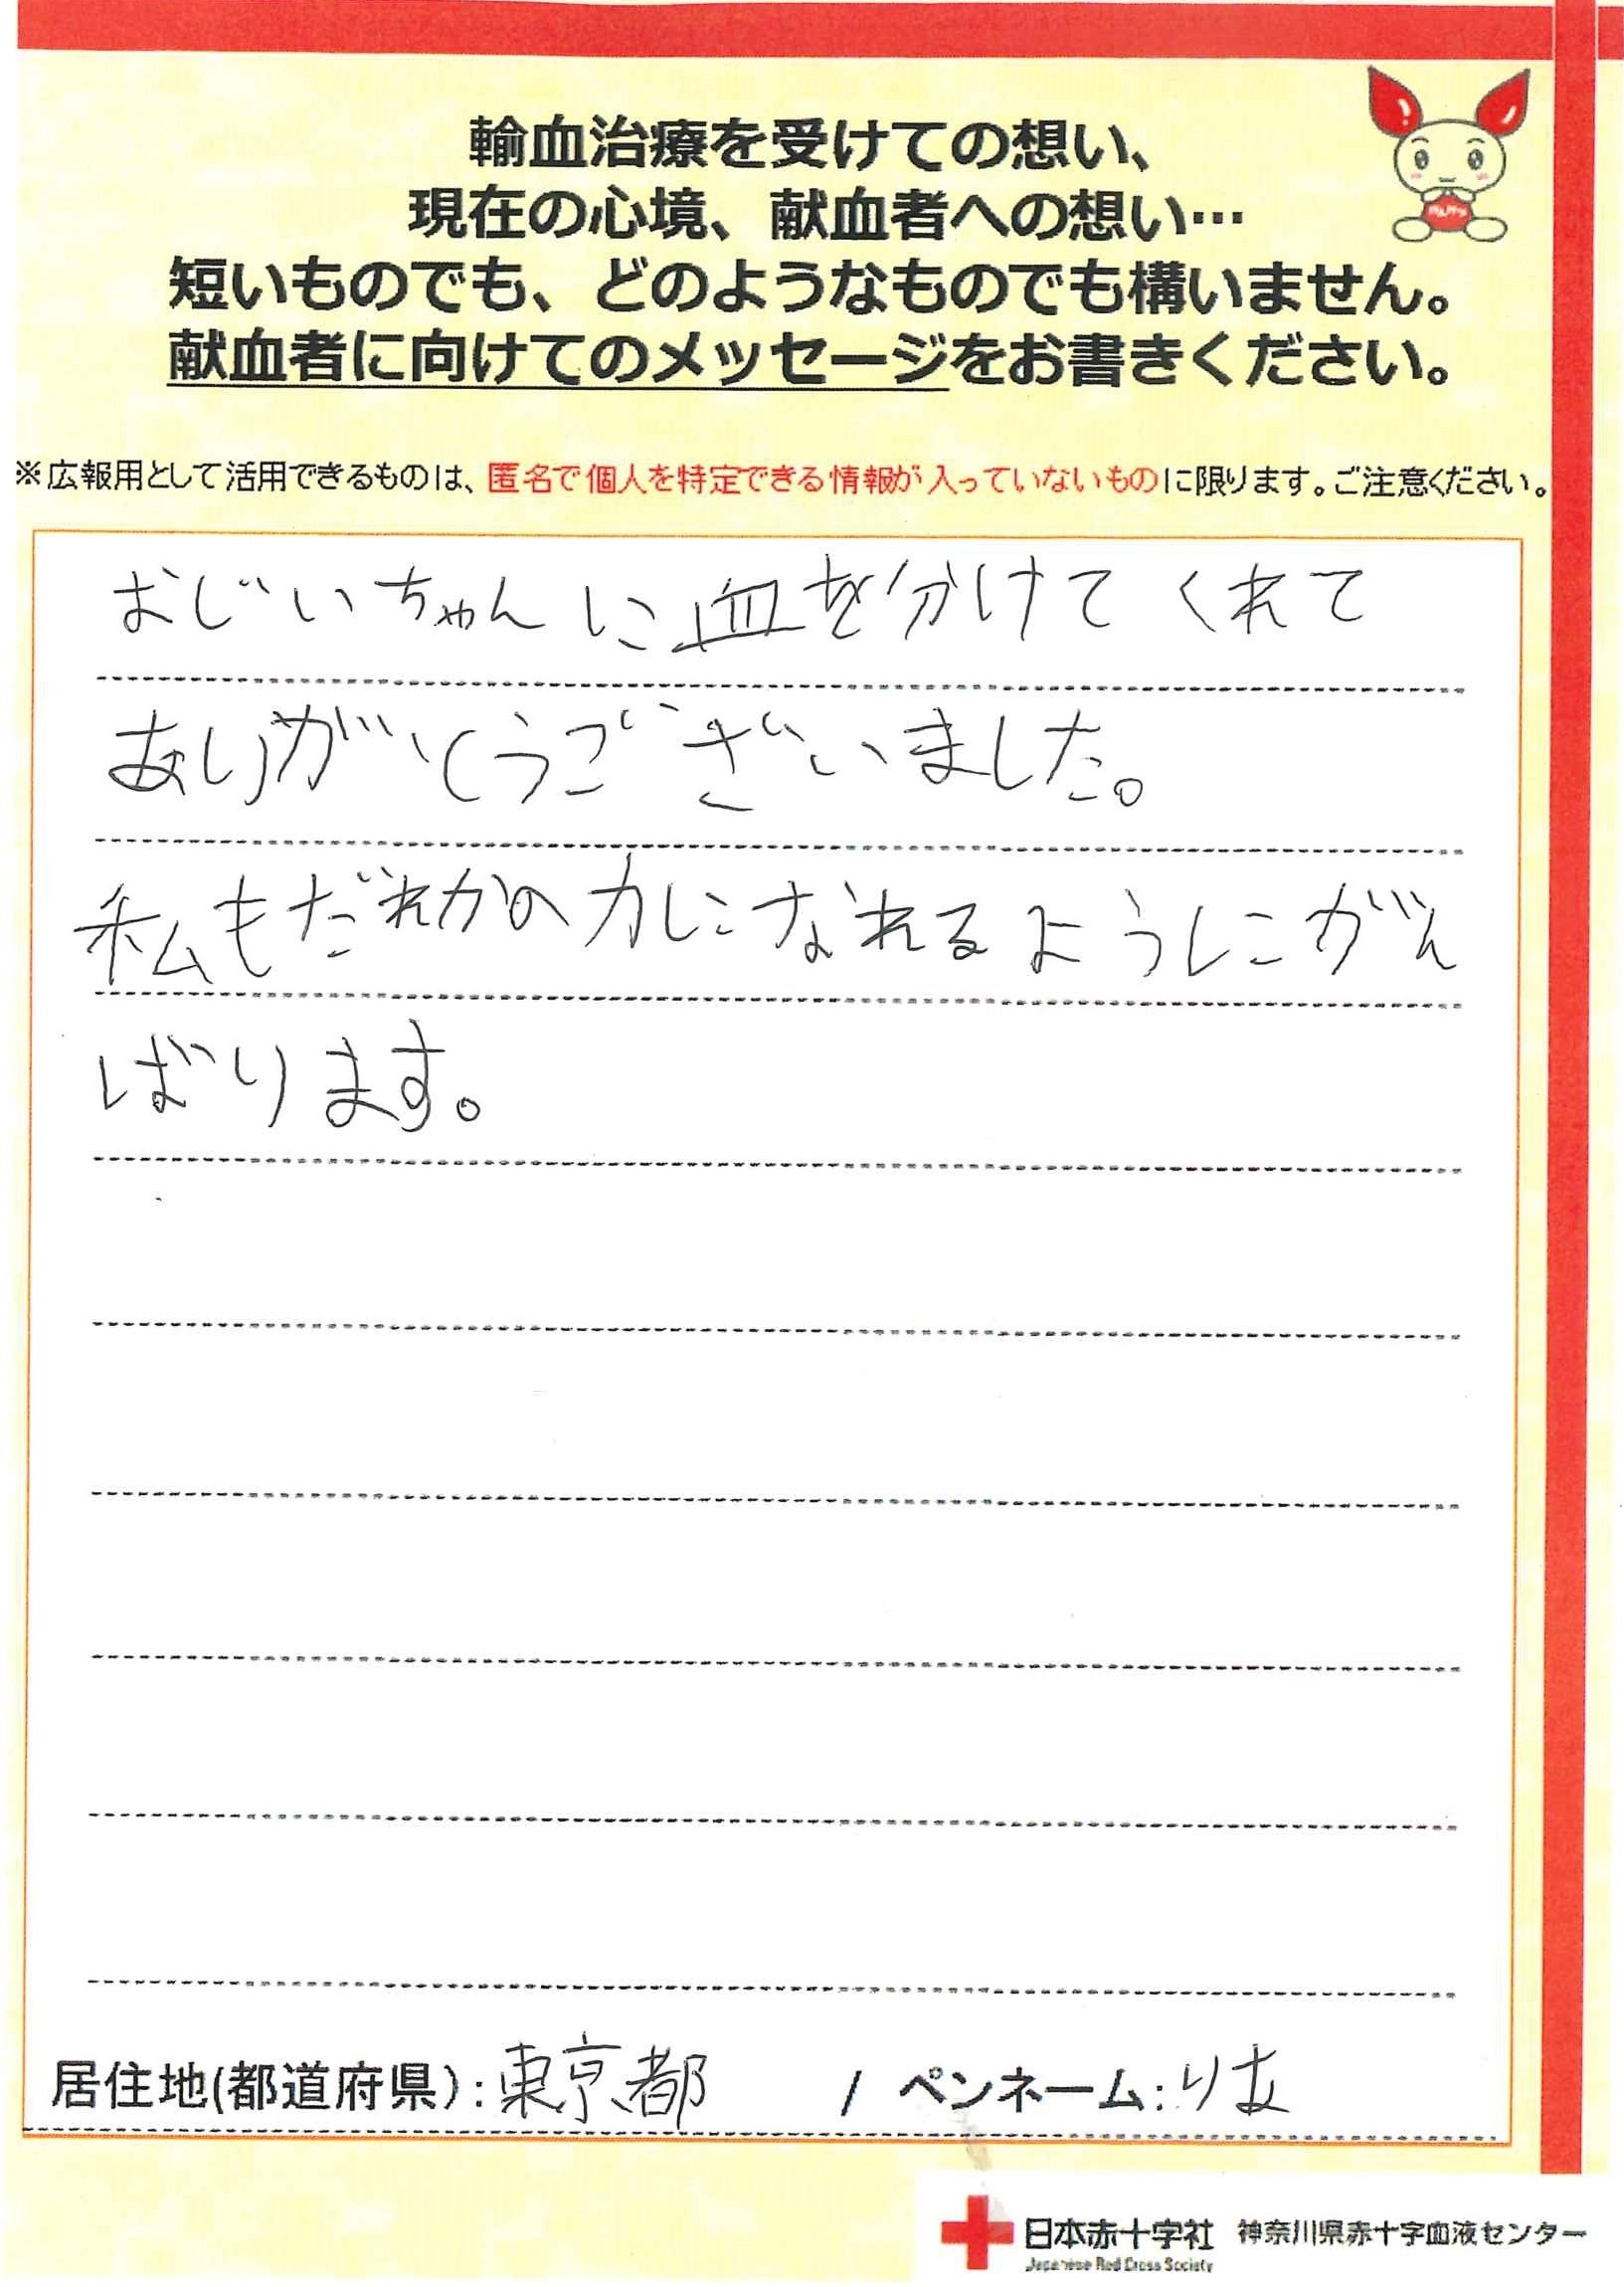 輸血治療を受けての想い、
現在の心境、献血者への想い…
短いものでも、どのようなものでも構いません。
献血者に向けてのメッセージをお書きください。
※広報用として活用できるものは、匿名で個人を特定できる情報が入っていないものに限ります。ご注意ください。
おじいちゃんに血を分けてくれて
ありがとうございました。
私もだれかの力になれるようにがん
ばります。
居住地(都道府県):東京都 / ペンネーム:りあ
日本赤十字社 神奈川県赤十字血液センター
Japanese Red Cross Society